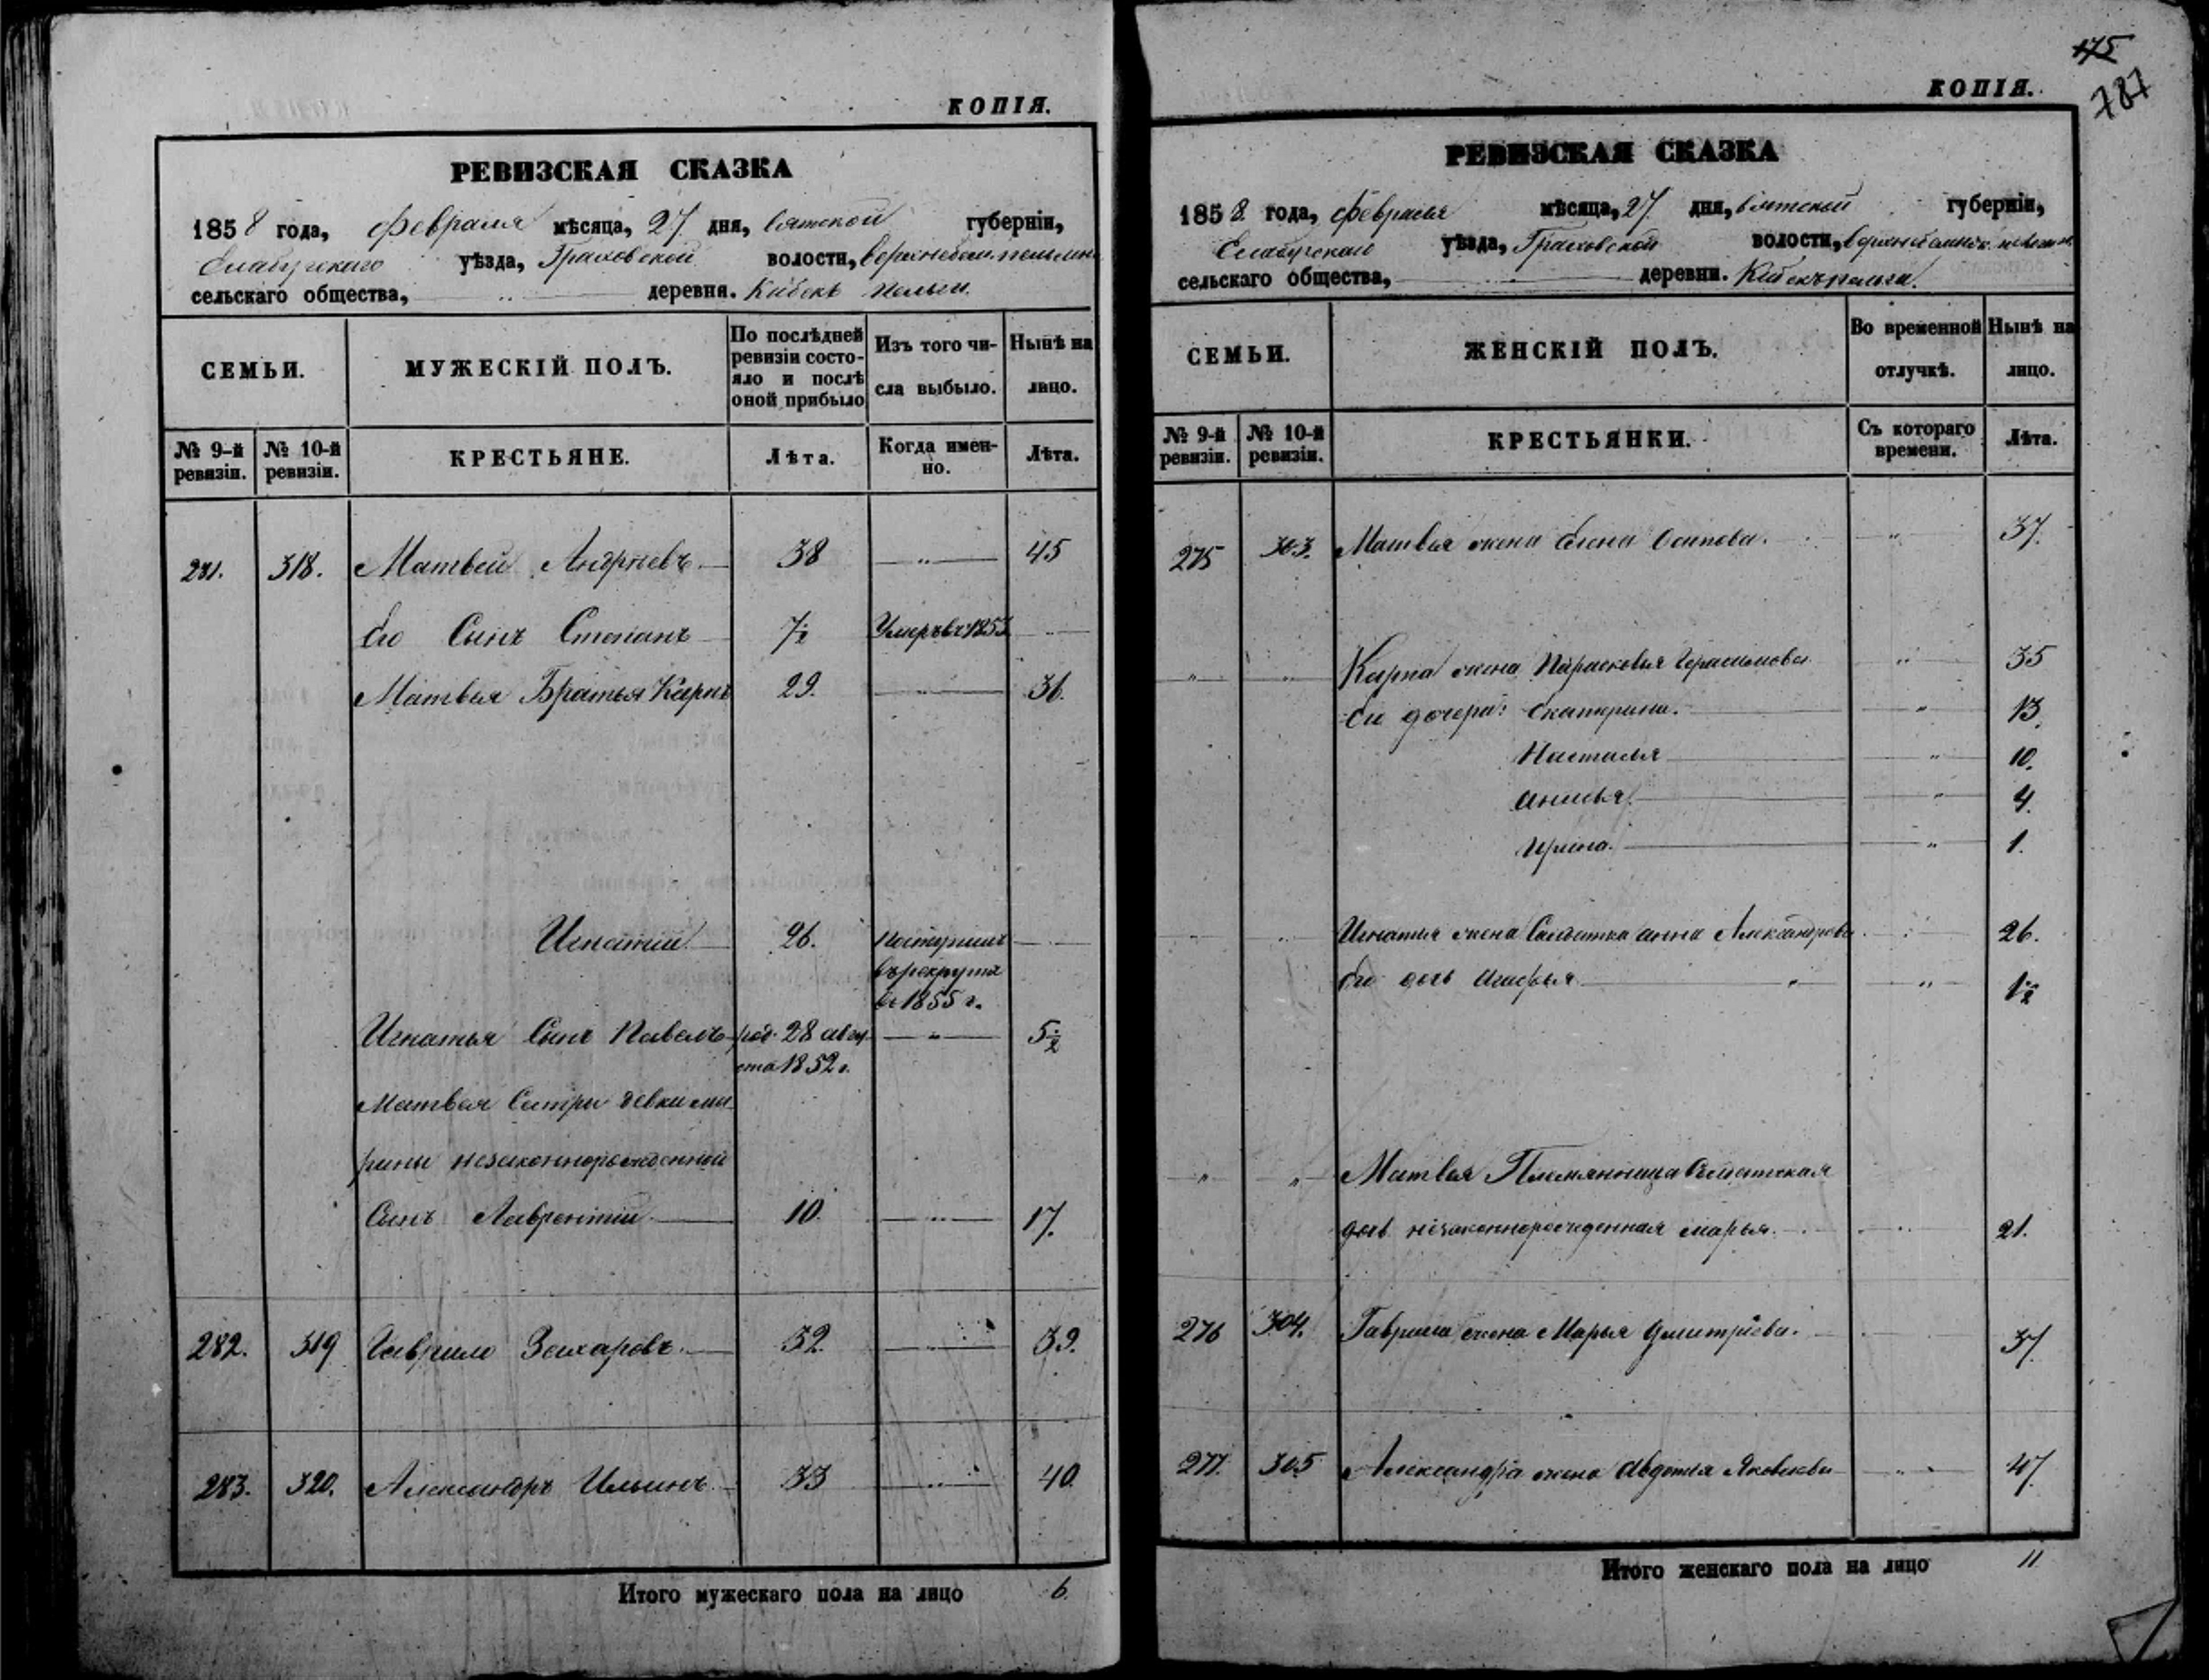 КОПІЯ.
РЕВИЗСКАЯ СКАЗКА
1858 года, февраля мѣсяца, 27 дня, Вятской губерніи,
Елабугскаго уѣзда, Граховской волости,
сельскаго общества, " деревня. Кибекъ пельги
СЕМЬИ.
МУЖЕСКІЙ ПОЛЪ.
По послѣдней ревизіи состояло и послѣ оной прибыло
Изъ того числа выбыло.
Нынѣ на лицо.
№ 9-й ревизіи.
№ 10-й ревизіи.
КРЕСТЬЯНЕ.
Лѣта.
Когда именно.
Лѣта.
281. 318. Матвей Андреевъ 38 " 45
Его Сынъ Степанъ 7½ Умеръ въ 1853
Матвея Братья Карпъ 29. " 36.
Игнатий 26. Поступилъ
въ рекруты
въ 1855 г.
Игнатья Сынъ Павелъ род. 28 авгу- " 5½
ста 1852 г.
Матвея Сестры девки Ма-
рины незаконнорожденной
Сынъ Лаврентий 10. " 17.
282. 319 Гаврило Захаровъ 32. " 39.
283. 320. Александръ Ильинъ 33 " 40.
Итого мужескаго пола на лицо 6.
175
787
КОПІЯ.
РЕВИЗСКАЯ СКАЗКА
1858 года, февраля мѣсяца, 27 дня, Вятской губерніи,
Елабугскаго уѣзда, Граховской волости,
сельскаго общества, деревни. Кибекъ пельга.
СЕМЬИ.
ЖЕНСКІЙ ПОЛЪ.
Во временной отлучкѣ.
Нынѣ на лицо.
№ 9-й ревизіи.
№ 10-й ревизіи.
КРЕСТЬЯНКИ.
Съ котораго времени.
Лѣта.
275 303. Матвея жена Елена Осипова. " 37.
" " Карпа жена Парасковья Герасимова " 35
Ея дочери: Екатерина. " 13.
Настасья " 10.
Анисья. " 4.
Ирина. " 1.
" Игнатья жена Солдатка Анна Александрова 26.
Его дочь Агафья " " 1½
" " Матвея Племянница Солдатская
дочь незаконнорожденная Марья. " 21.
276 304. Гаврила жена Марья Дмитріева. 37.
277. 305 Александра жена Авдотья Яковлева " 47.
Итого женскаго пола на лицо 11